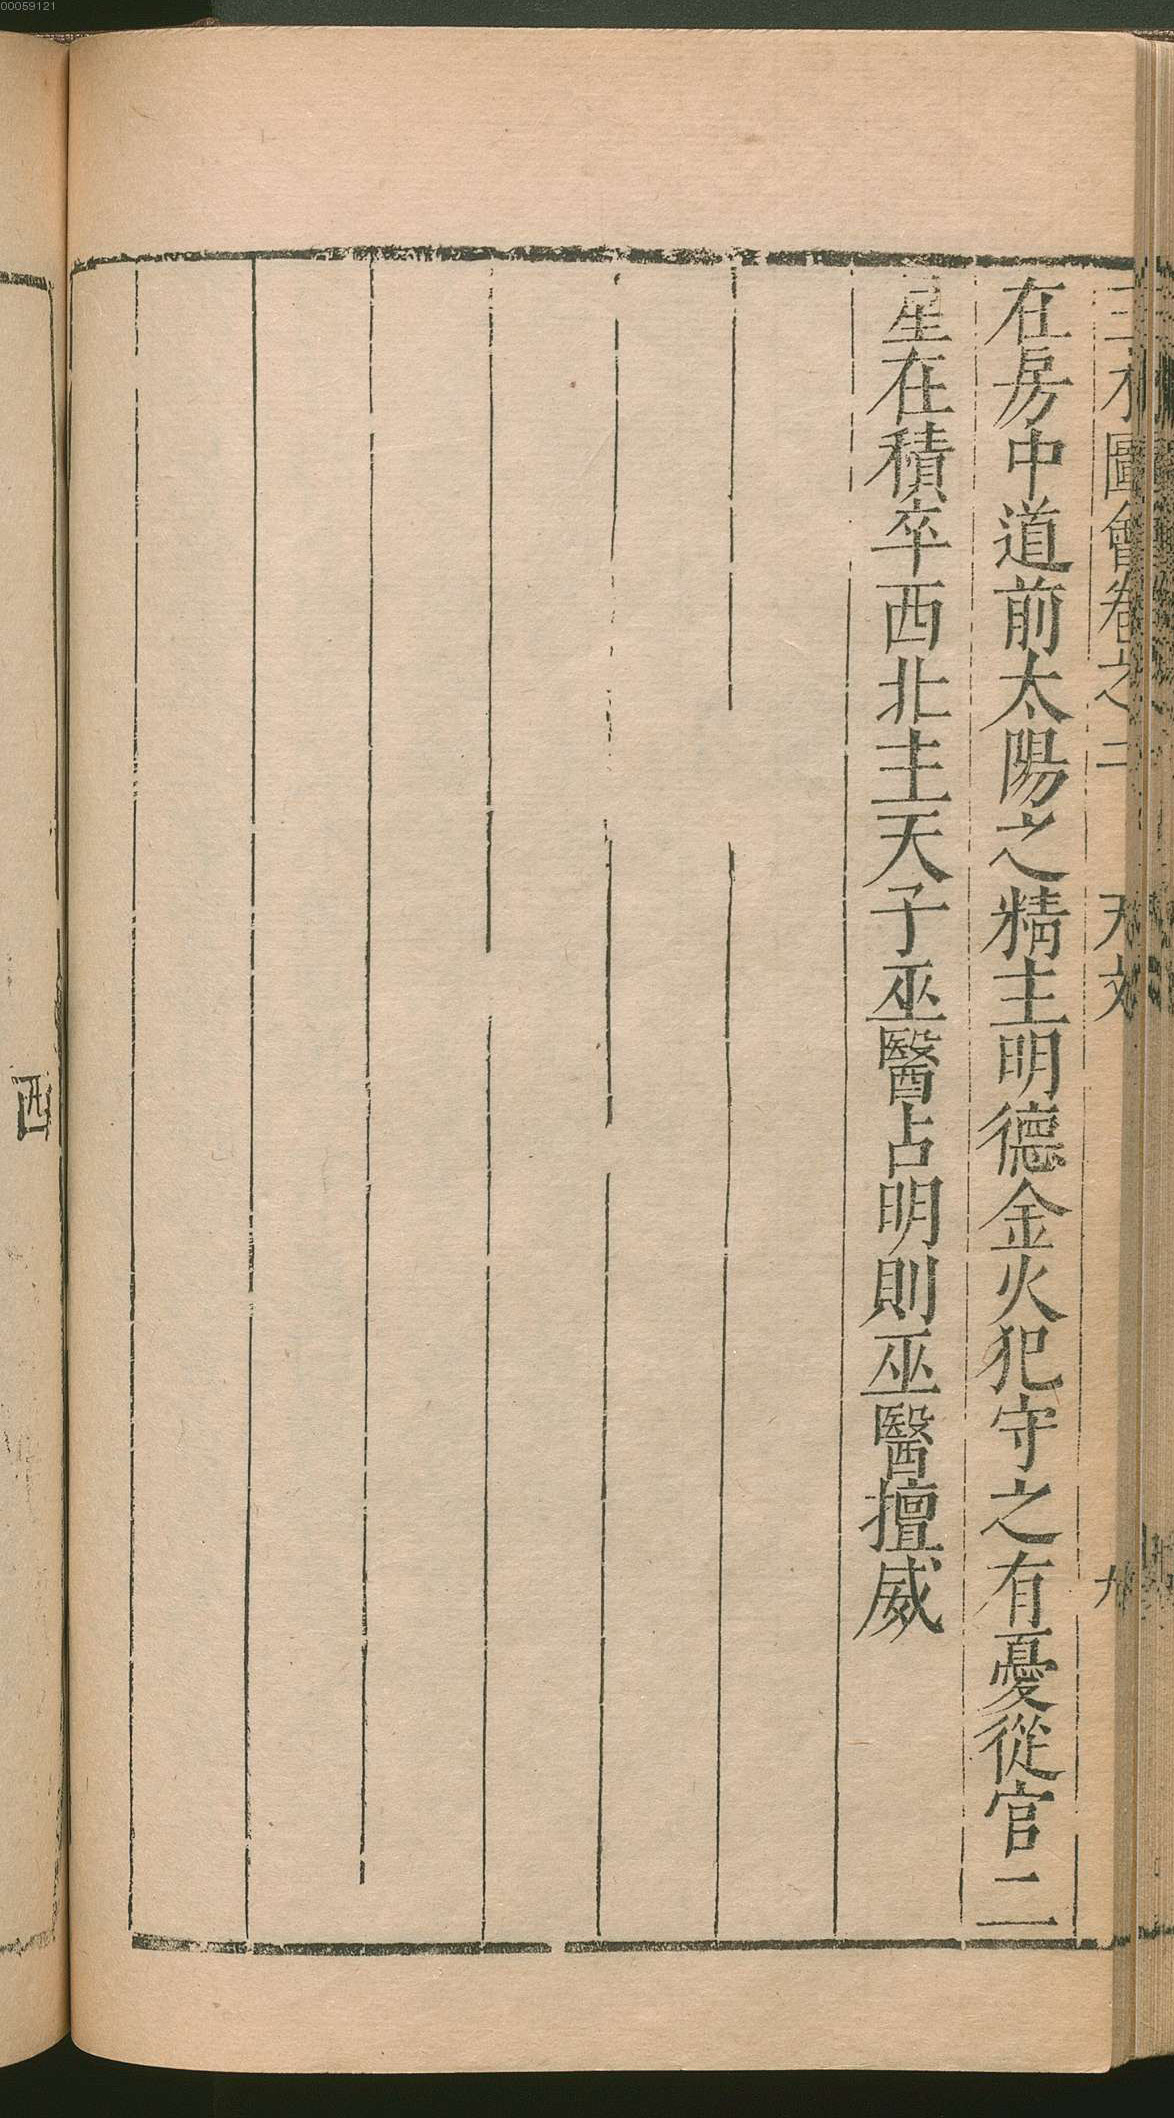 00059121
三才圖會卷之二 天文 九
在房中道前太陽之精主明德金火犯守之有憂從官二
星在積卒西北主天子巫醫占明則巫醫擅威
西